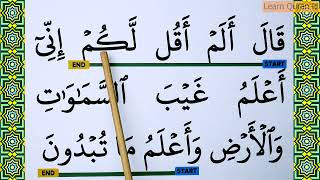 Learn Quran
قَالَ أَلَمْ أَقُل لَّكُمْ إِنِّيٓ
END START
أَعْلَمُ غَيْبَ ٱلسَّمَٰوَٰتِ
وَٱلْأَرْضِ وَأَعْلَمُ مَا تُبْدُونَ
END START